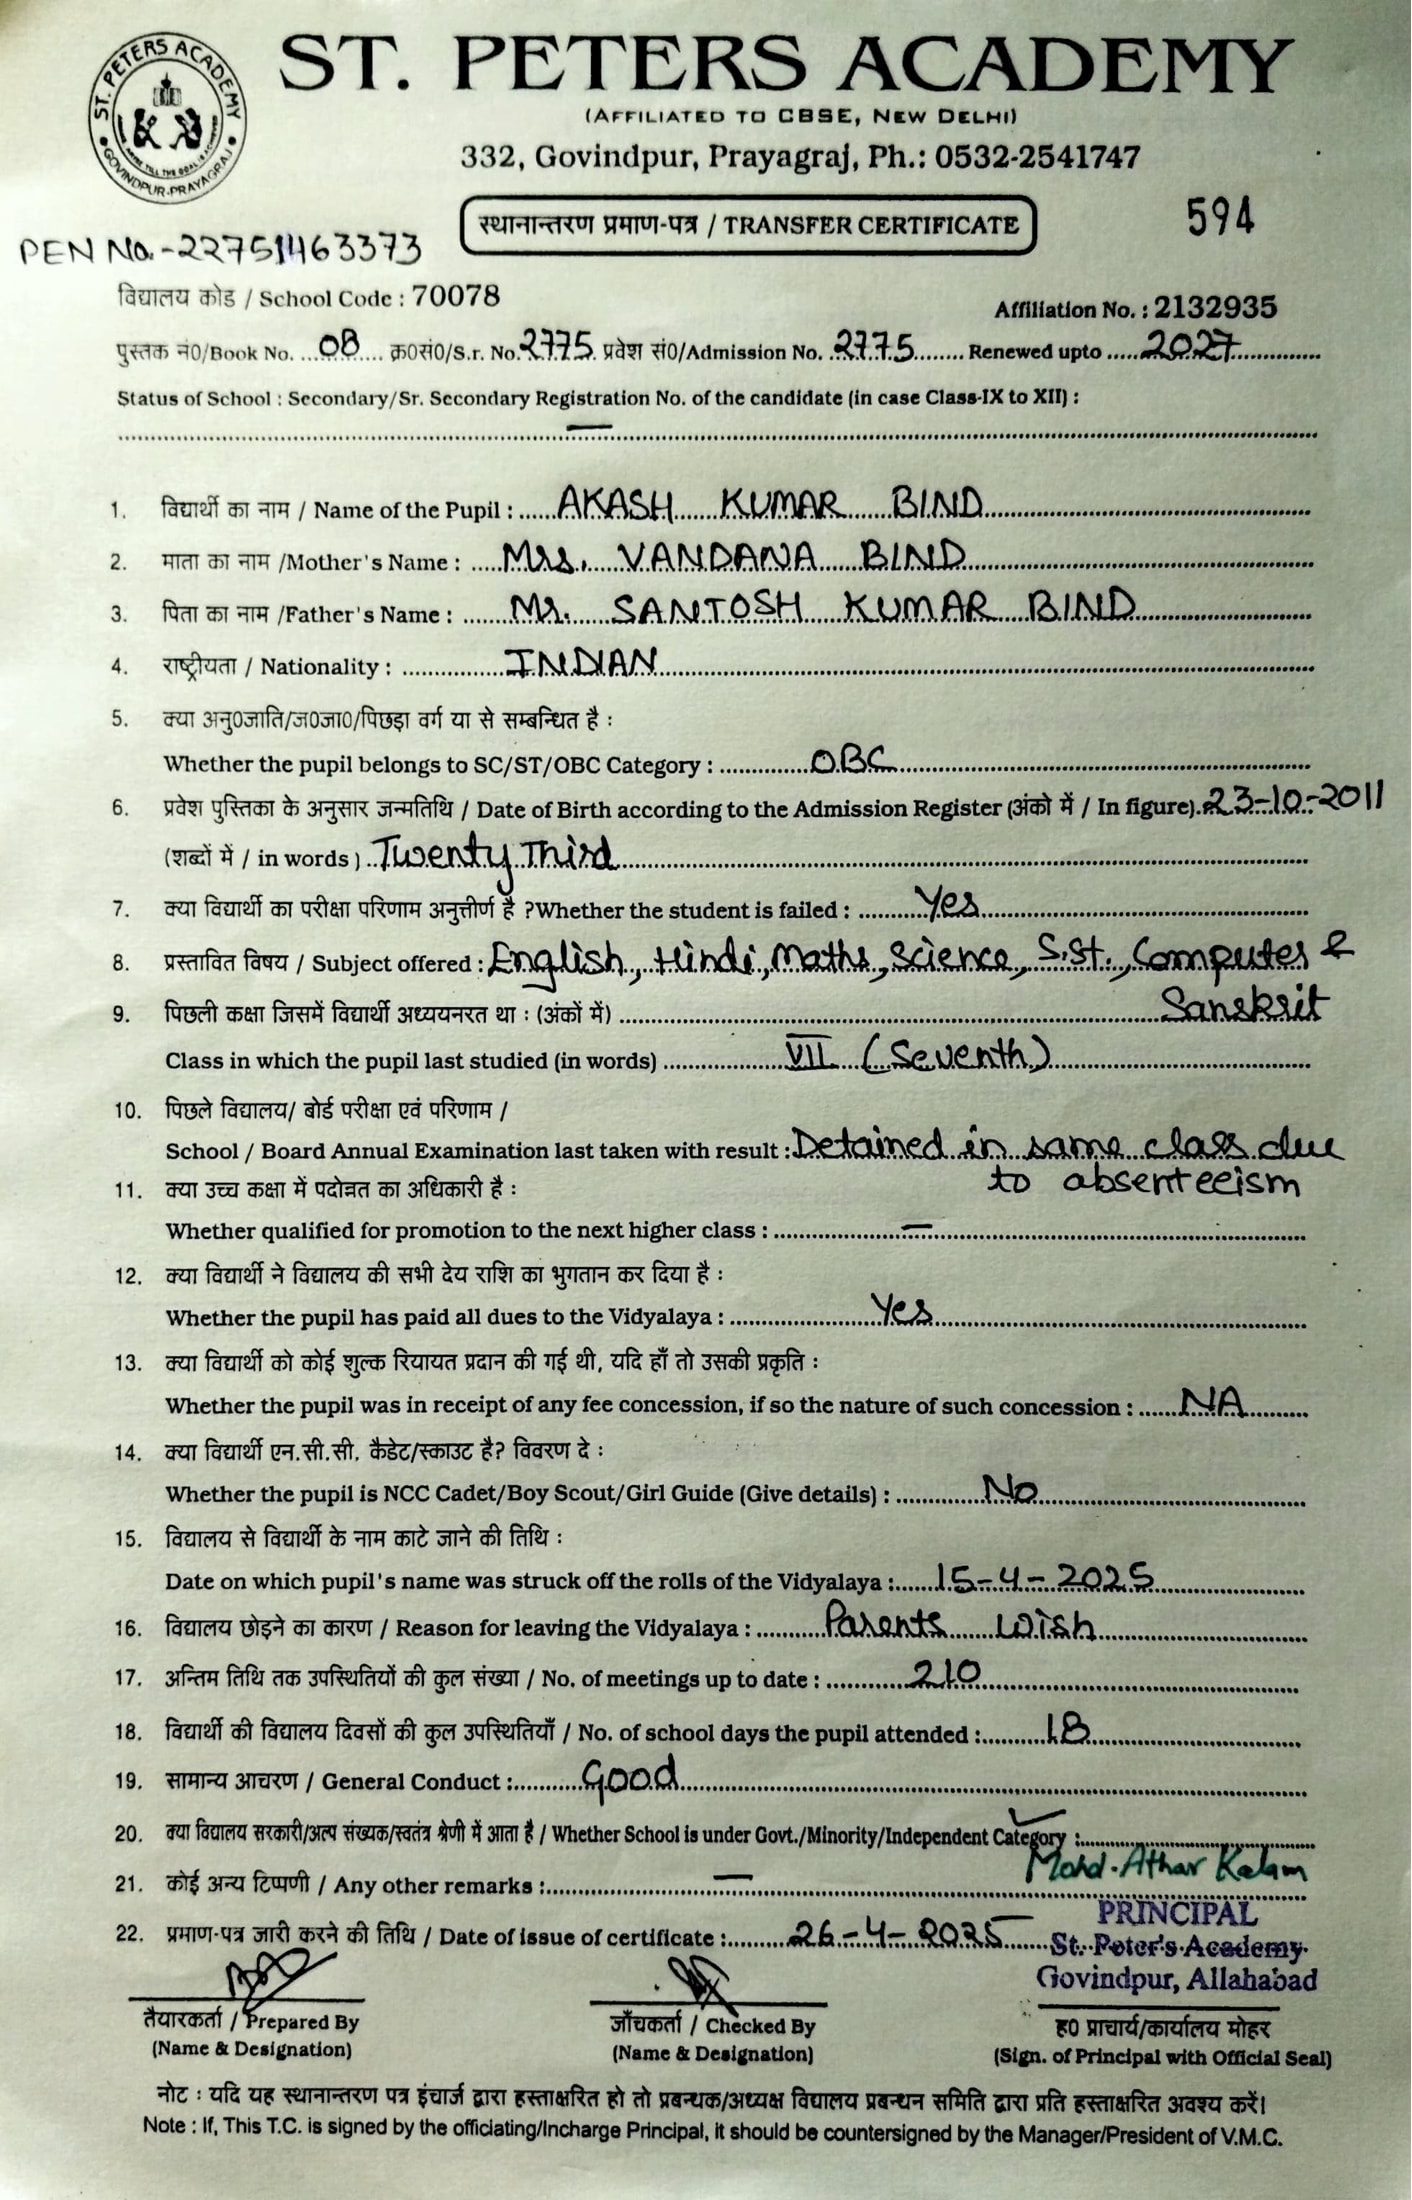 ST. PETERS ACADEMY
ST. PETERS ACADEMY
GOVINDPUR-PRAYAGRAJ
(AFFILIATED TO CBSE, NEW DELHI)
332, Govindpur, Prayagraj, Ph.: 0532-2541747
स्थानान्तरण प्रमाण-पत्र / TRANSFER CERTIFICATE
594
PEN No.-22751463373
विद्यालय कोड / School Code : 70078
Affiliation No. : 2132935
पुस्तक नं0/Book No. ...08.... क्र0सं0/S.r. No.2775. प्रवेश सं0/Admission No. .2775........ Renewed upto .....2027..............
Status of School : Secondary/Sr. Secondary Registration No. of the candidate (in case Class-IX to XII) :
—
1. विद्यार्थी का नाम / Name of the Pupil : ......AKASH KUMAR BIND
2. माता का नाम /Mother's Name : .....Mrs. VANDANA BIND
3. पिता का नाम /Father's Name : .......Mr. SANTOSH KUMAR BIND
4. राष्ट्रीयता / Nationality : ...............INDIAN
5. क्या अनु0जाति/ज0जा0/पिछड़ा वर्ग या से सम्बन्धित है :
Whether the pupil belongs to SC/ST/OBC Category : .............OBC
6. प्रवेश पुस्तिका के अनुसार जन्मतिथि / Date of Birth according to the Admission Register (अंको में / In figure)..23-10-2011
(शब्दों में / in words ) ..Twenty Third
7. क्या विद्यार्थी का परीक्षा परिणाम अनुत्तीर्ण है ?Whether the student is failed : ..........Yes
8. प्रस्तावित विषय / Subject offered : English, Hindi, Maths, Science, S.St., Computer &
Sanskrit
9. पिछली कक्षा जिसमें विद्यार्थी अध्ययनरत था : (अंकों में)
Class in which the pupil last studied (in words) ..................VII (Seventh)
10. पिछले विद्यालय/ बोर्ड परीक्षा एवं परिणाम /
School / Board Annual Examination last taken with result : Detained in same class due
to absenteeism
11. क्या उच्च कक्षा में पदोन्नत का अधिकारी है :
Whether qualified for promotion to the next higher class : ...................—
12. क्या विद्यार्थी ने विद्यालय की सभी देय राशि का भुगतान कर दिया है :
Whether the pupil has paid all dues to the Vidyalaya : .....................Yes
13. क्या विद्यार्थी को कोई शुल्क रियायत प्रदान की गई थी, यदि हाँ तो उसकी प्रकृति :
Whether the pupil was in receipt of any fee concession, if so the nature of such concession : ......NA
14. क्या विद्यार्थी एन.सी.सी. कैडेट/स्काउट है? विवरण दे :
Whether the pupil is NCC Cadet/Boy Scout/Girl Guide (Give details) : .............No
15. विद्यालय से विद्यार्थी के नाम काटे जाने की तिथि :
Date on which pupil's name was struck off the rolls of the Vidyalaya :......15-4-2025
16. विद्यालय छोड़ने का कारण / Reason for leaving the Vidyalaya : ..........Parents Wish
17. अन्तिम तिथि तक उपस्थितियों की कुल संख्या / No. of meetings up to date : ............210
18. विद्यार्थी की विद्यालय दिवसों की कुल उपस्थितियाँ / No. of school days the pupil attended :..........18
19. सामान्य आचरण / General Conduct :..........Good
20. क्या विद्यालय सरकारी/अल्प संख्यक/स्वतंत्र श्रेणी में आता है / Whether School is under Govt./Minority/Independent Category :
Mohd. Athar Kalam
21. कोई अन्य टिप्पणी / Any other remarks :........................—
PRINCIPAL
22. प्रमाण-पत्र जारी करने की तिथि / Date of issue of certificate :.........26-4-2025
St. Peter's Academy
Govindpur, Allahabad
तैयारकर्ता / Prepared By
जाँचकर्ता / Checked By
ह0 प्राचार्य/कार्यालय मोहर
(Name & Designation)
(Name & Designation)
(Sign. of Principal with Official Seal)
नोट : यदि यह स्थानान्तरण पत्र इंचार्ज द्वारा हस्ताक्षरित हो तो प्रबन्धक/अध्यक्ष विद्यालय प्रबन्धन समिति द्वारा प्रति हस्ताक्षरित अवश्य करें।
Note : If, This T.C. is signed by the officiating/Incharge Principal, it should be countersigned by the Manager/President of V.M.C.